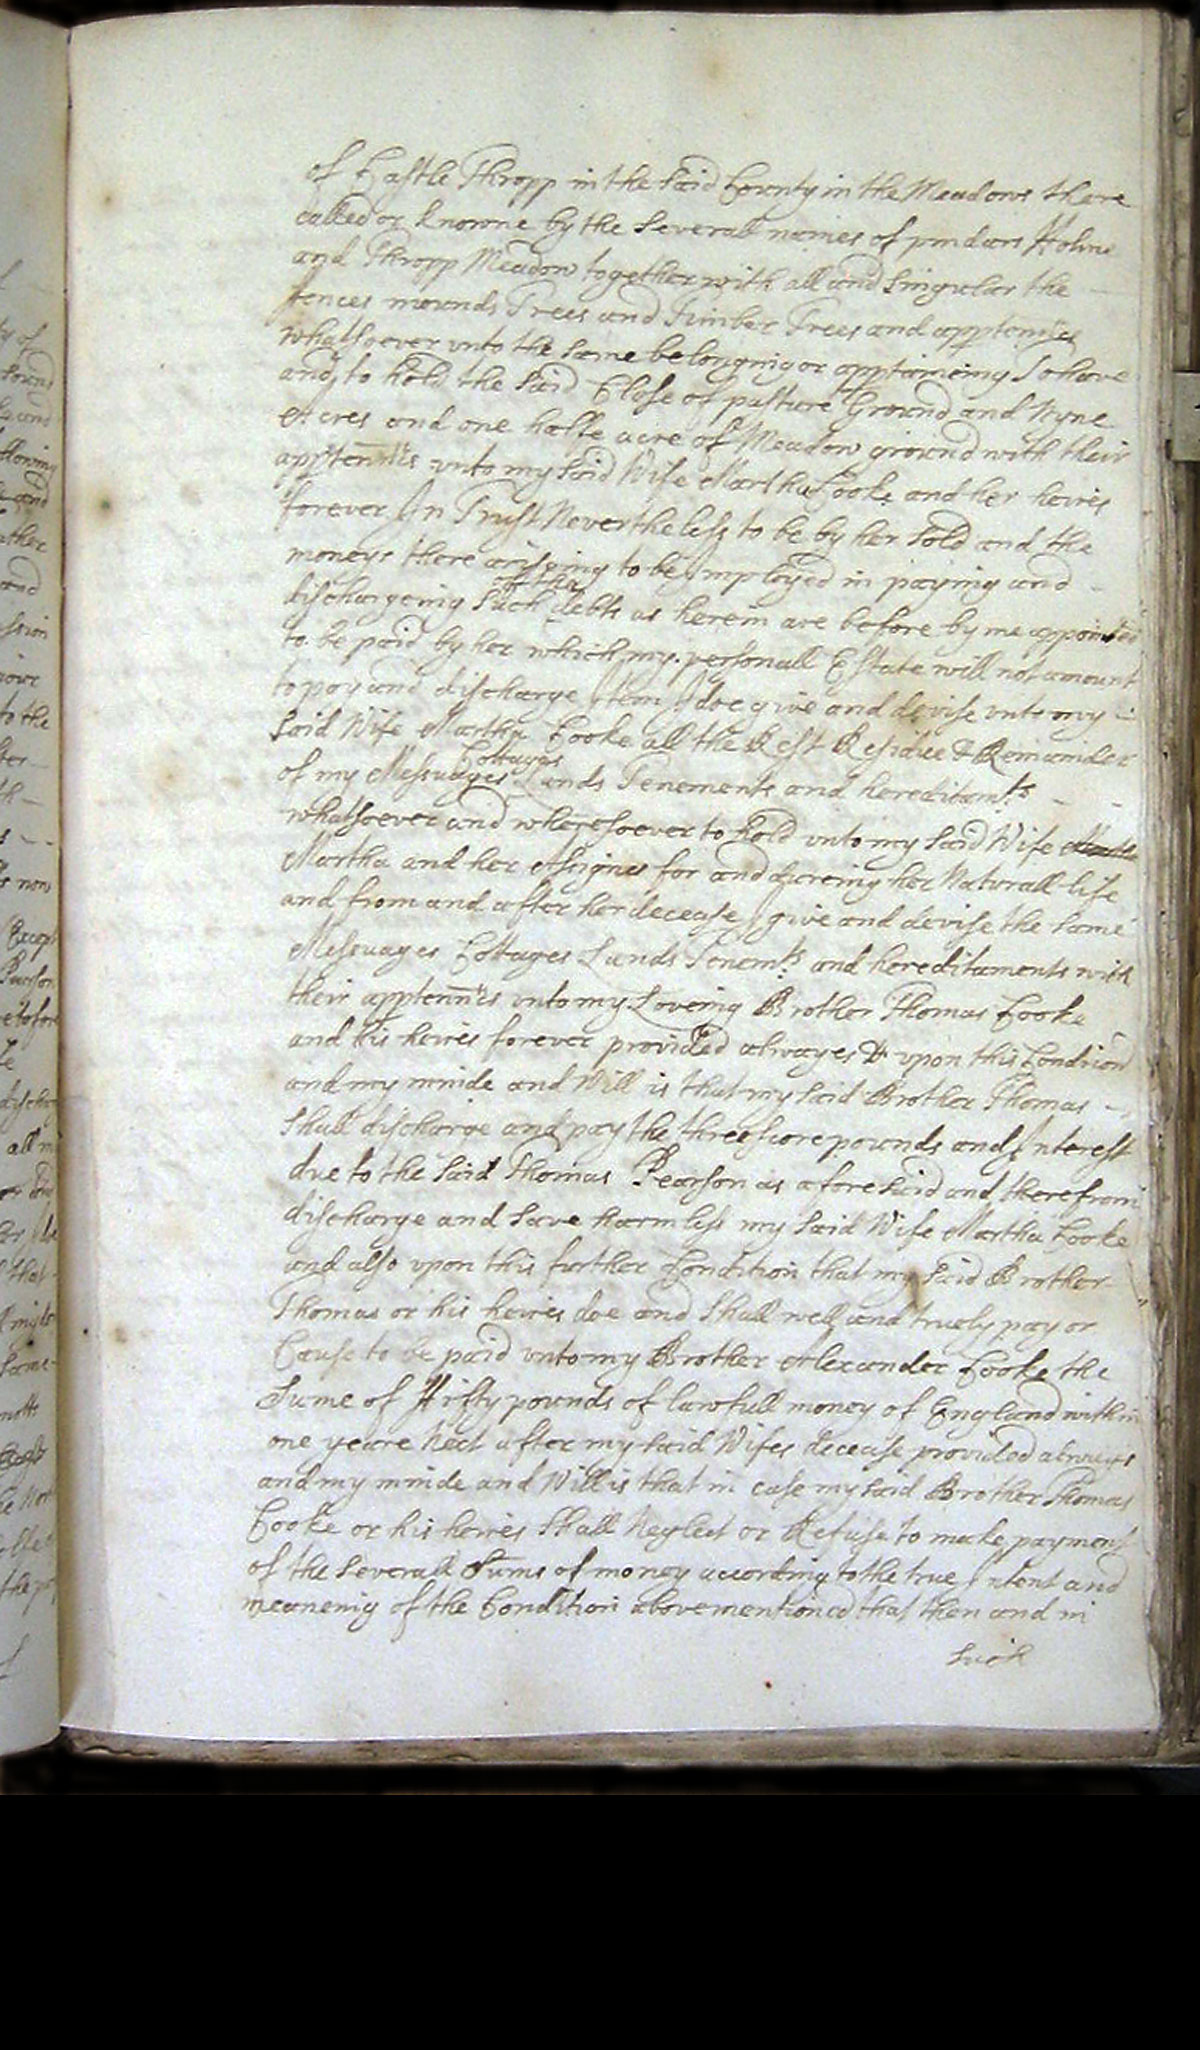 of Castle Thropp in the said County in the Meadows there
called or knowne by the severall names of pindars Holme
and Thropp Meadow together with all and singular the
fences mounds Trees and Timber Trees and apptenn'ces
whatsoever vnto the same belonging or apptaineing To have
and to hold the said Close of pasture Ground and Nyne
Acres and one halfe acre of Meadow ground with their
apptenn'cs vnto my said Wife Martha Cooke and her heires
forever In Trust Nevertheless to be by her sold and the
moneys there ariseing to be Imployed in paying and
of the
dischargeing such debts as herein are before by me appointed
to be paid by her which my personall Estate will not amount
to pay and discharge Item I doe give and devise vnto my
said Wife Martha Cooke all the Rest Residue & Remainder
Cottages
of my Messuages Lands Tenements and hereditamts
whatsoever and wheresoever to hold vnto my said Wife
Martha and her Assignes for and dureing her Naturall life
and from and after her decease I give and devise the same
Messuages Cottages Lands Tenemts and hereditaments with
their apptenn'cs vnto my Loveing Brother Thomas Cooke
and his heires forever provided alwayes & vpon this Condicion
and my minde and Will is that my said Brother Thomas
shall discharge and pay the threescore pounds and Interest
due to the said Thomas Pearson as aforesaid and therefrom
discharge and save harmless my said Wife Martha Cooke
and also vpon this further Condition that my said Brother
Thomas or his heires doe and shall well and truely pay or
Cause to be paid vnto my Brother Alexander Cooke the
Sume of Fifty pounds of lawfull money of England within
one yeare Next after my said Wifes decease provided alwayes
and my minde and Will is that in case my said Brother Thomas
Cooke or his heires shall Neglect or Refuse to make payment
of the severall Sums of money according to the true Intent and
meaneing of the Condition abovementioned that then and in
such